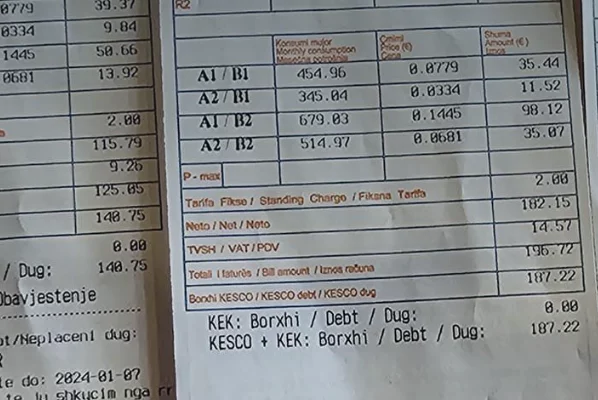 0779 39.37
0334 9.84
1445 50.66
0681 13.92
2.00
115.79
9.26
125.05
140.75
0.00
/ Dug: 140.75
Obavjestenje
bt/Neplaceni dug:
te do: 2024-01-07
te Ju shkycim nga rr
R2
Konsumi mujor
Monthly consumption
Mesecna potrošnja
Çmimi
Price (€)
Cena
Shuma
Amount (€)
Iznos
A1 / B1 454.96 0.0779 35.44
A2 / B1 345.04 0.0334 11.52
A1 / B2 679.03 0.1445 98.12
A2 / B2 514.97 0.0681 35.07
P - max
Tarifa Fikse / Standing Charge / Fiksna Tarifa 2.00
Neto / Net / Neto 182.15
TVSH / VAT / PDV 14.57
Totali i faturës / Bill amount / Iznos računa 196.72
Borxhi KESCO / KESCO debt / KESCO dug 187.22
KEK: Borxhi / Debt / Dug: 0.00
KESCO + KEK: Borxhi / Debt / Dug: 187.22